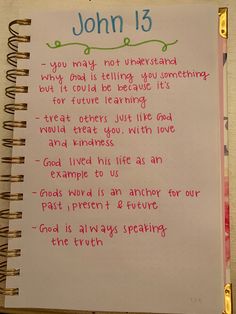 John 13
- you may not understand
why God is telling you something
but it could be because it's
for future learning
- treat others just like God
would treat you. with love
and kindness
- God lived his life as an
example to us
- Gods word is an anchor for our
past, present & future
- God is always speaking
the truth